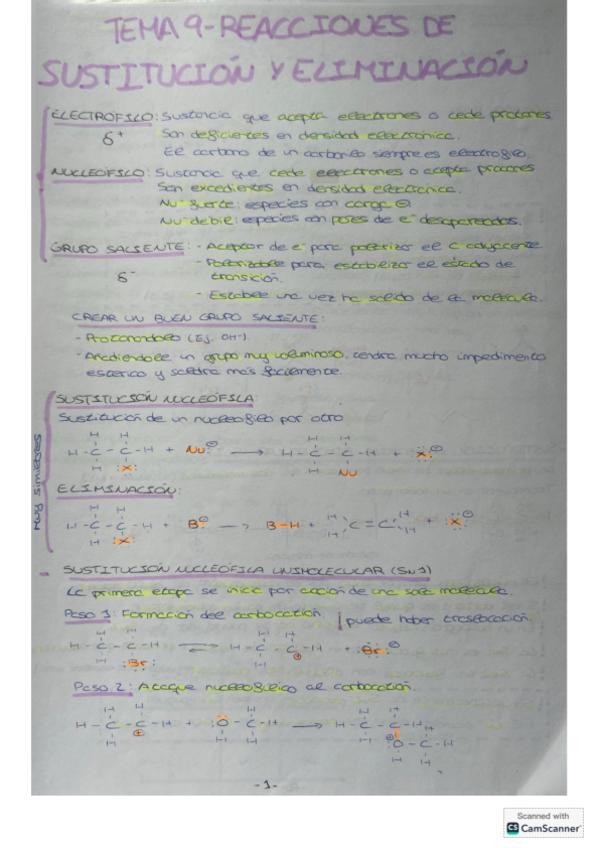 TEMA 9-REACCIONES DE
SUSTITUCIÓN Y ELIMINACIÓN
ELECTRÓFILO: Sustancia que acepta electrones o cede protones
δ+ Son deficientes en densidad electrónica.
El carbono de un carbonilo siempre es electrófilo.
NUCLEÓFILO: Sustancia que cede electrones o acepta protones
Son excedientes en densidad electrónica.
Nu⁻ fuerte: especies con carga ⊖
Nu⁻ debil: especies con pares de e⁻ desapareados.
GRUPO SALIENTE: - Aceptor de e⁻ para polarizar el C adyacente
δ⁻ - Polarizable para estabilizar el estado de
transición.
- Estable una vez ha salido de la molécula.
CREAR UN BUEN GRUPO SALIENTE:
- Protonandolo (Ej. OH⁻).
- Añadiendole un grupo muy voluminoso, tendra mucho impedimento
estérico y saldra mas facilmente.
SUSTITUCIÓN NUCLEÓFILA
Sustitución de un nucleófilo por otro
H H H H
H-C-C-H + Nu⊖ → H-C-C-H + :X:⊖
H :X: H Nu
ELIMINACIÓN:
H H
H-C-C-H + B:⊖ → B-H + H H C=C H H + :X:⊖
H :X:
SUSTITUCIÓN NUCLEÓFILA UNIMOLECULAR (SN1)
La primera etapa se inicia por acción de una sola molécula.
Paso 1: Formación del carbocatión. puede haber trasposición.
H H H H
H-C-C-H ⇌ H-C-C-H + :Br:⊖
H :Br: H ⊕
Paso 2: Ataque nucleofílico al carbocatión.
H H H H H H
H-C-C-H + :O-C-H → H-C-C-H
H ⊕ H H H ⊕O-C-H
H H
-1-
Scanned with
CS CamScanner